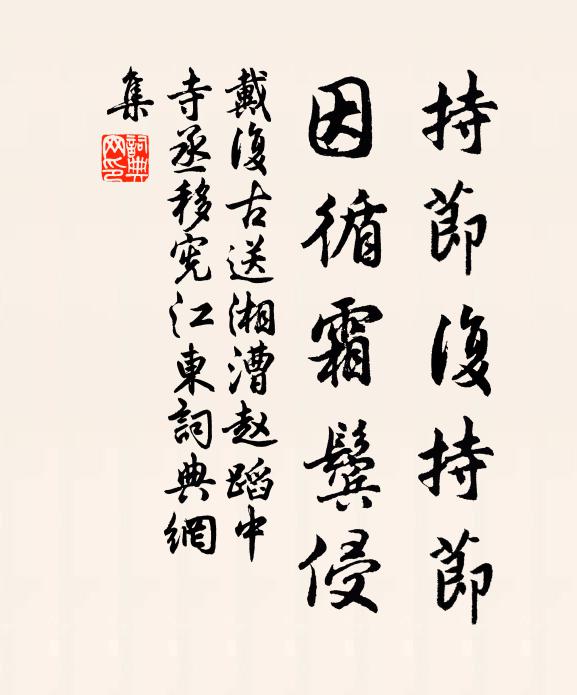 持節復持節
因循霜鬢侵
戴復古送湘漕赵蹈中
寺丞移宪江東詞典網
集
詞典网印